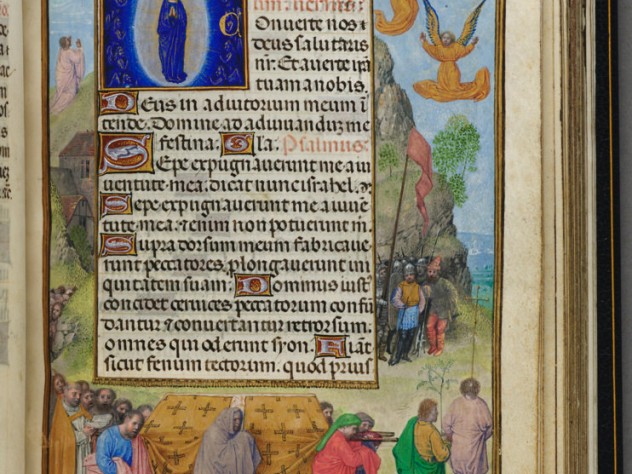 Conuerte nos
deus salutaris
nr̄. Et auerte irā
tuam a nobis.
Deus in adiutorium meum ī
tende. Domine ad adiuuandū me
festina. Gla. Psalmus.
Sepe expugnauerunt me a iu
uentute mea. dicat nunc israhel.
Sepe expugnauerunt me a iuuen
tute mea. etenim non potuerunt m̄.
Supra dorsum meum fabricaue
runt peccatores. prolongauerunt ini
quitatem suam. Dominus iustꝰ
concidet ceruices peccatorum confū
dantur ⁊ conuertantur retrorsum.
omnes qui oderunt syon. Fiāt
sicut fenum tectorum. quod prius